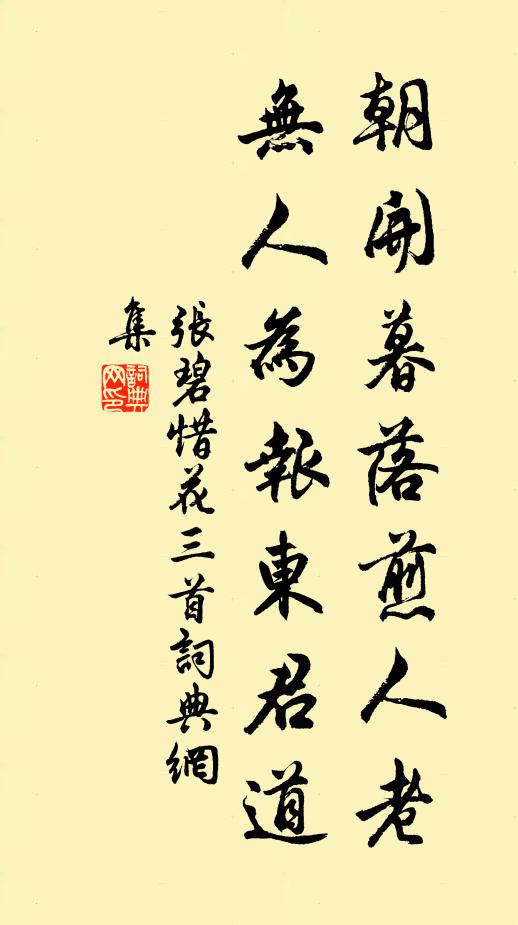 朝開暮落煎人老
無人為報東君道
張碧惜花三首詞典網
集
詞典
网印